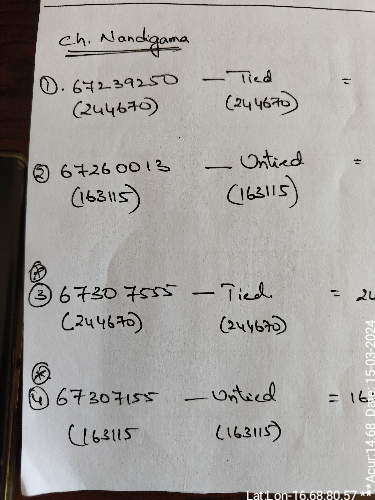 Ch. Nandigama
① . 67239250 — Tied =
(244670) (244670)
② 67260013 — Untied =
(163115) (163115)
③ 67307555 — Tied = 24
(244670) (244670)
④ 67307155 — Untied = 16
(163115 (163115)
Lat Lon-16.68;80.57 ***Acur:14.68 Date:15-03-2024